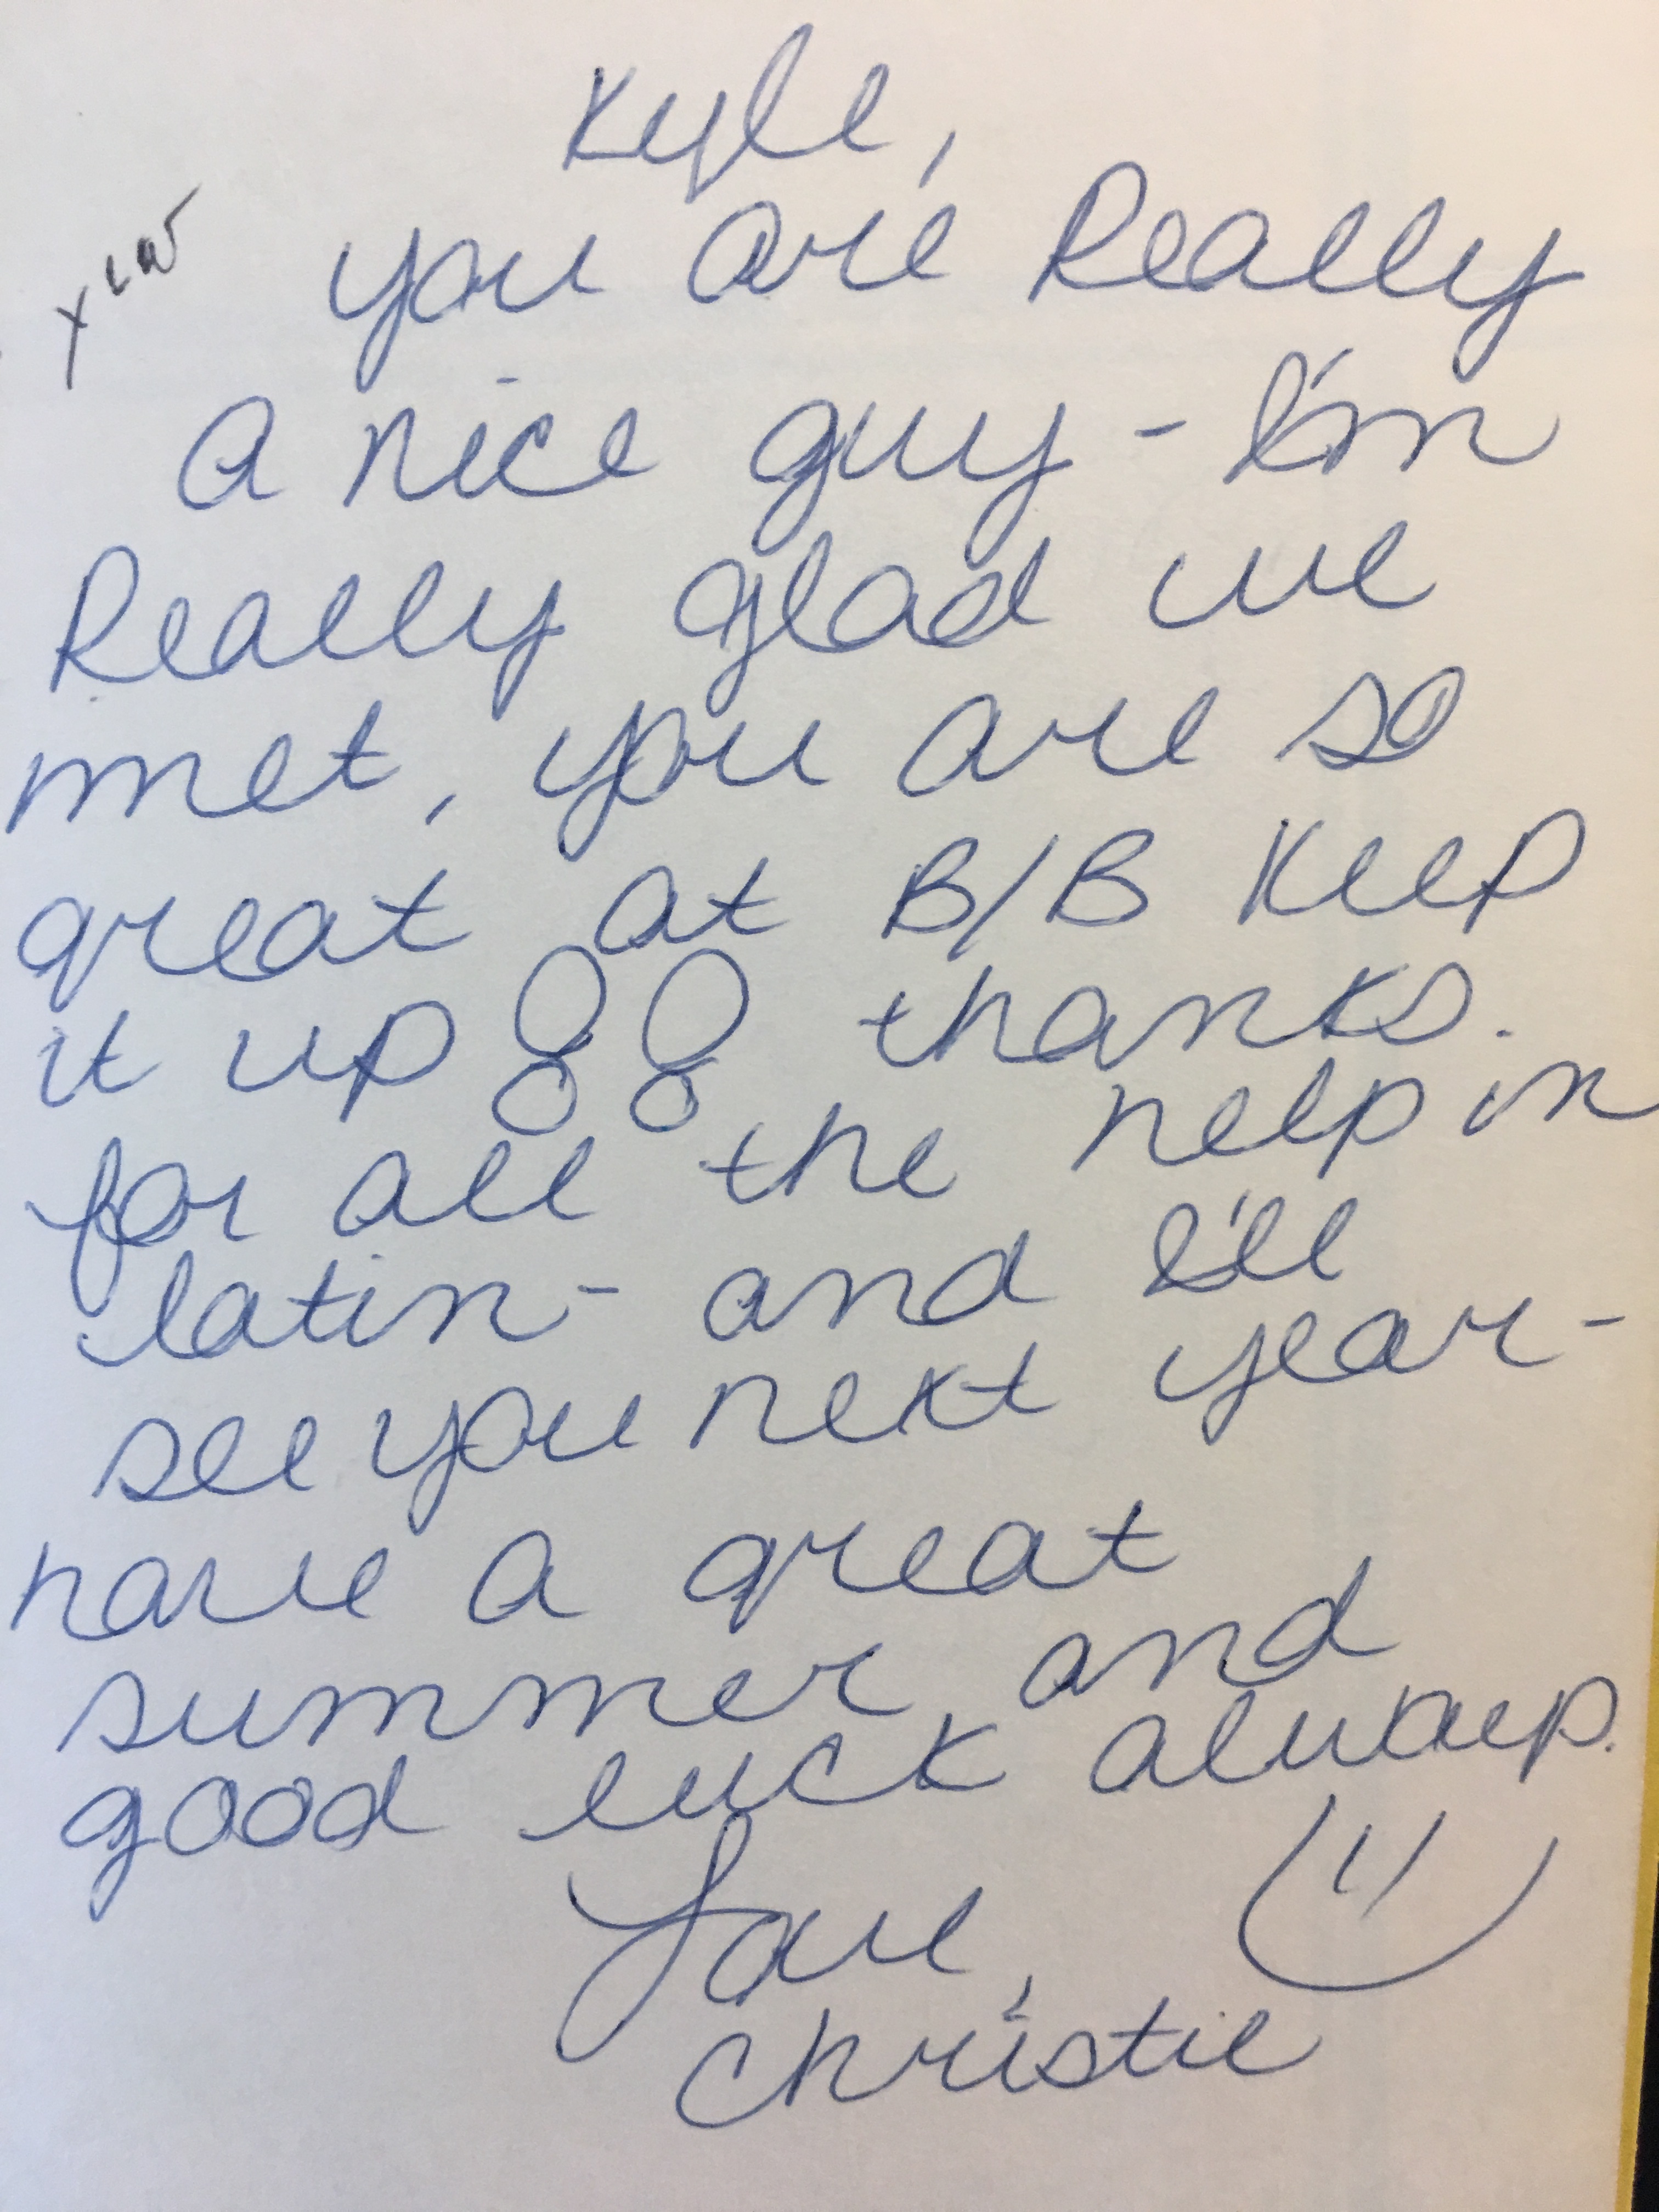 Kyle,
you are Really
a nice guy - I'm
Really glad we
met, you are so
great at B/B Keep
it up !! thanks.
for all the help in
latin - and I'll
see you next year -
have a great
summer and
good luck always.
Love,
Christie